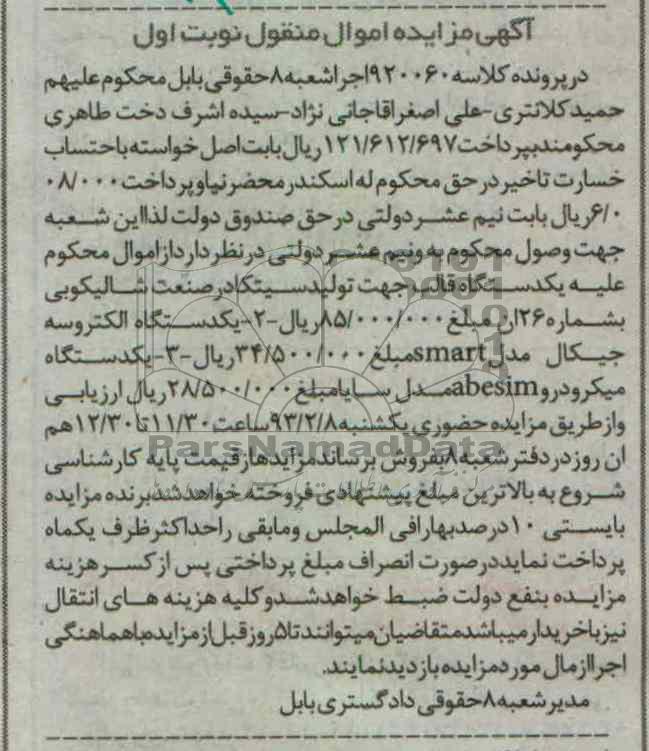 آگهی مزایده اموال منقول نوبت اول
در پرونده کلاسه ۹۲۰۰۶۰ اجرا شعبه ۸ حقوقی بابل محکوم علیهم
حمید کلانتری-علی اصغر اقاجانی نژاد-سیده اشرف دخت طاهری
محکومند بپرداخت ۱۲۱/۶۱۲/۶۹۷ ریال بابت اصل خواسته با احتساب
خسارت تاخیر در حق محکوم له اسکندر محضرنیا و پرداخت ۰۸/۰۰۰
۶/۰ ریال بابت نیم عشر دولتی در حق صندوق دولت لذا این شعبه
جهت وصول محکوم به و نیم عشر دولتی در نظر دارد از اموال محکوم
علیه یکدستگاه قالب جهت تولید سیتکا در صنعت شالیکوبی
بشماره ۲۶ ان مبلغ ۸۵/۰۰۰/۰۰۰ ریال-۲-یکدستگاه الکتروسه
جیکال مدل smart مبلغ ۳۴/۵۰۰/۰۰۰ ریال-۳-یکدستگاه
میکرودرو abesim مدل سایا مبلغ ۲۸/۵۰۰/۰۰۰ ریال ارزیابی
و از طریق مزایده حضوری یکشنبه ۹۳/۲/۸ ساعت ۱۱/۳۰ تا ۱۲/۳۰ هم
ان روز در دفتر شعبه ۸ بفروش برساند مزایده از قیمت پایه کارشناسی
شروع به بالاترین مبلغ پیشنهادی فروخته خواهد شد برنده مزایده
بایستی ۱۰ درصد بها را فی المجلس و مابقی را حداکثر ظرف یکماه
پرداخت نماید در صورت انصراف مبلغ پرداختی پس از کسر هزینه
مزایده بنفع دولت ضبط خواهد شد و کلیه هزینه های انتقال
نیز با خریدار میباشد متقاضیان میتوانند تا ۵ روز قبل از مزایده با هماهنگی
اجرا از مال مورد مزایده بازدید نمایند.
مدیر شعبه ۸ حقوقی دادگستری بابل
ParsNamadData